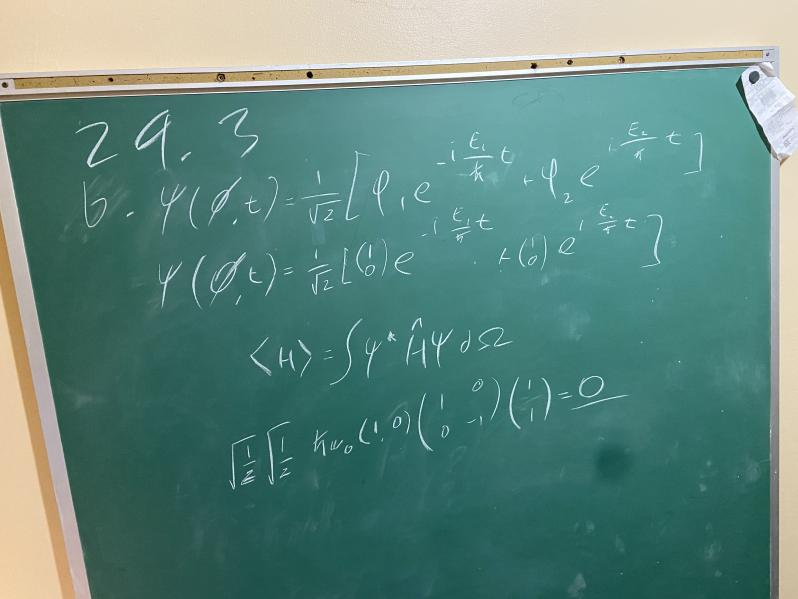 29.3
b. ψ(φ,t) = 1/√2 [φ₁ e^{-i E₁/ħ t} + φ₂ e^{-i E₂/ħ t}]
ψ(φ,t) = 1/√2 [(1 0) e^{-i E₁/ħ t} + (1 0) e^{i E₂/ħ t}]
⟨H⟩ = ∫ψ* Ĥ ψ dΩ
√1/2 √1/2 ħω₀ (1, 0) (1 0 0 -1) (1 1) = 0